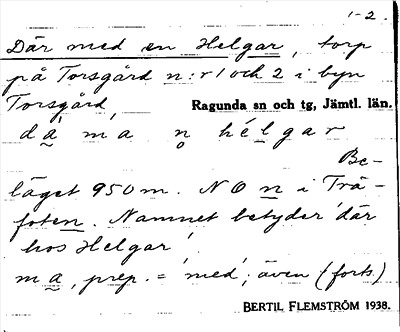 1-2.
Där med en Helgar, torp
på Torsgård n:r 1 och 2 i byn
Torsgård, Ragunda sn och tg, Jämtl. län.
dä ma n hélgar
Be-
läget 950 m. NO n i Trå-
foten. Namnet betyder 'där
hos Helgar'
ma, prep. = 'med'; även (forts.)
BERTIL FLEMSTRÖM 1938.